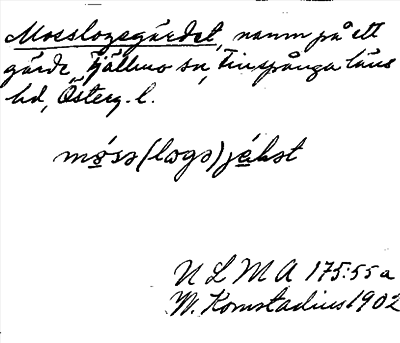 Mosslogsgärdet, namn på ett
gärde, Tjällmo sn, Finspånga läns
hd, Österg. l.
U L M A 175:55 a
W. Komstadius 1902